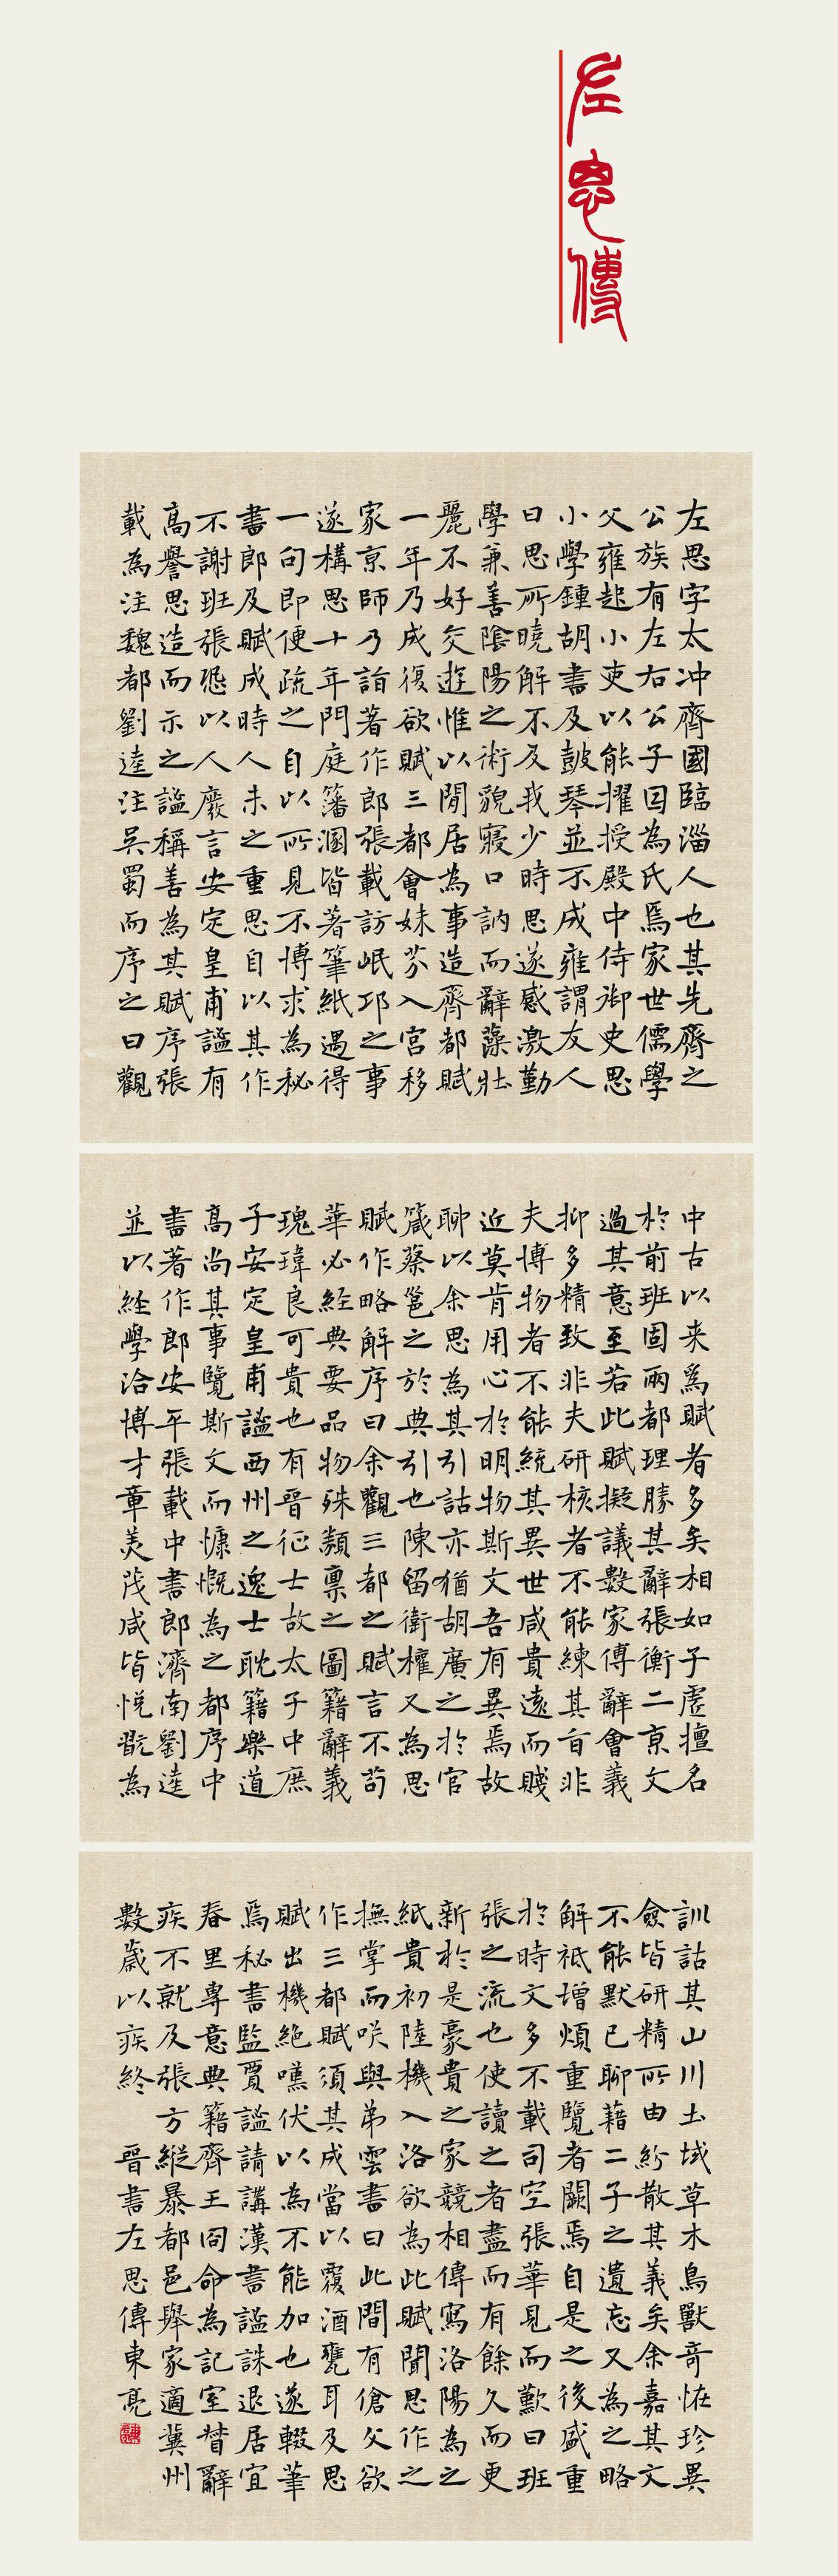 左思傳
左思字太冲齊國臨淄人也其先齊之
公族有左右公子因為氏焉家世儒學
父雍起小吏以能擢授殿中侍御史思
小學鍾胡書及鼓琴並不成雍謂友人
曰思所曉解不及我少時思遂感激勤
學兼善陰陽之術貌寢口訥而辭藻壯
麗不好交遊惟以閒居為事造齊都賦
一年乃成復欲賦三都會妹芬入宮移
家京師乃詣著作郎張載訪岷邛之事
遂構思十年門庭籓溷皆著筆紙遇得
一句即便疏之自以所見不博求為秘
書郎及賦成時人未之重思自以其作
不謝班張恐以人廢言安定皇甫謐有
高譽思造而示之謐稱善為其賦序張
載為注魏都劉逵注吳蜀而序之曰觀
中古以来為賦者多矣相如子虛擅名
於前班固兩都理勝其辭張衡二京文
過其意至若此賦擬議數家傅辭會義
抑多精致非夫研核者不能練其旨非
夫博物者不能統其異世咸貴遠而賤
近莫肯用心於明物斯文吾有異焉故
聊以余思為其引詁亦猶胡廣之於官
箴蔡邕之於典引也陳留衛權又為思
賦作略解序曰余觀三都之賦言不苟
華必經典要品物殊類稟之圖籍辭義
瑰瑋良可貴也有晉征士故太子中庶
子安定皇甫謐西州之逸士耽籍樂道
高尚其事覽斯文而慷慨為之都序中
書著作郎安平張載中書郎濟南劉逵
並以經學洽博才章美茂咸皆悅翫為
訓詁其山川土域草木鳥獸奇怪珍異
僉皆研精所由紛散其義矣余嘉其文
不能默已聊藉二子之遺忘又為之略
解祗增煩重覽者闕焉自是之後盛重
於時文多不載司空張華見而歎曰班
張之流也使讀之者盡而有餘久而更
新於是豪貴之家競相傳寫洛陽為之
紙貴初陸機入洛欲為此賦聞思作之
撫掌而咲與弟雲書曰此間有傖父欲
作三都賦須其成當以覆酒甕耳及思
賦出機絕嘆伏以為不能加也遂輟筆
焉秘書監賈謐請講漢書謐誅退居宜
春里專意典籍齊王冏命為記室督辭
疾不就及張方縱暴都邑舉家適冀州
數歲以疾終 晉書左思傳東亮